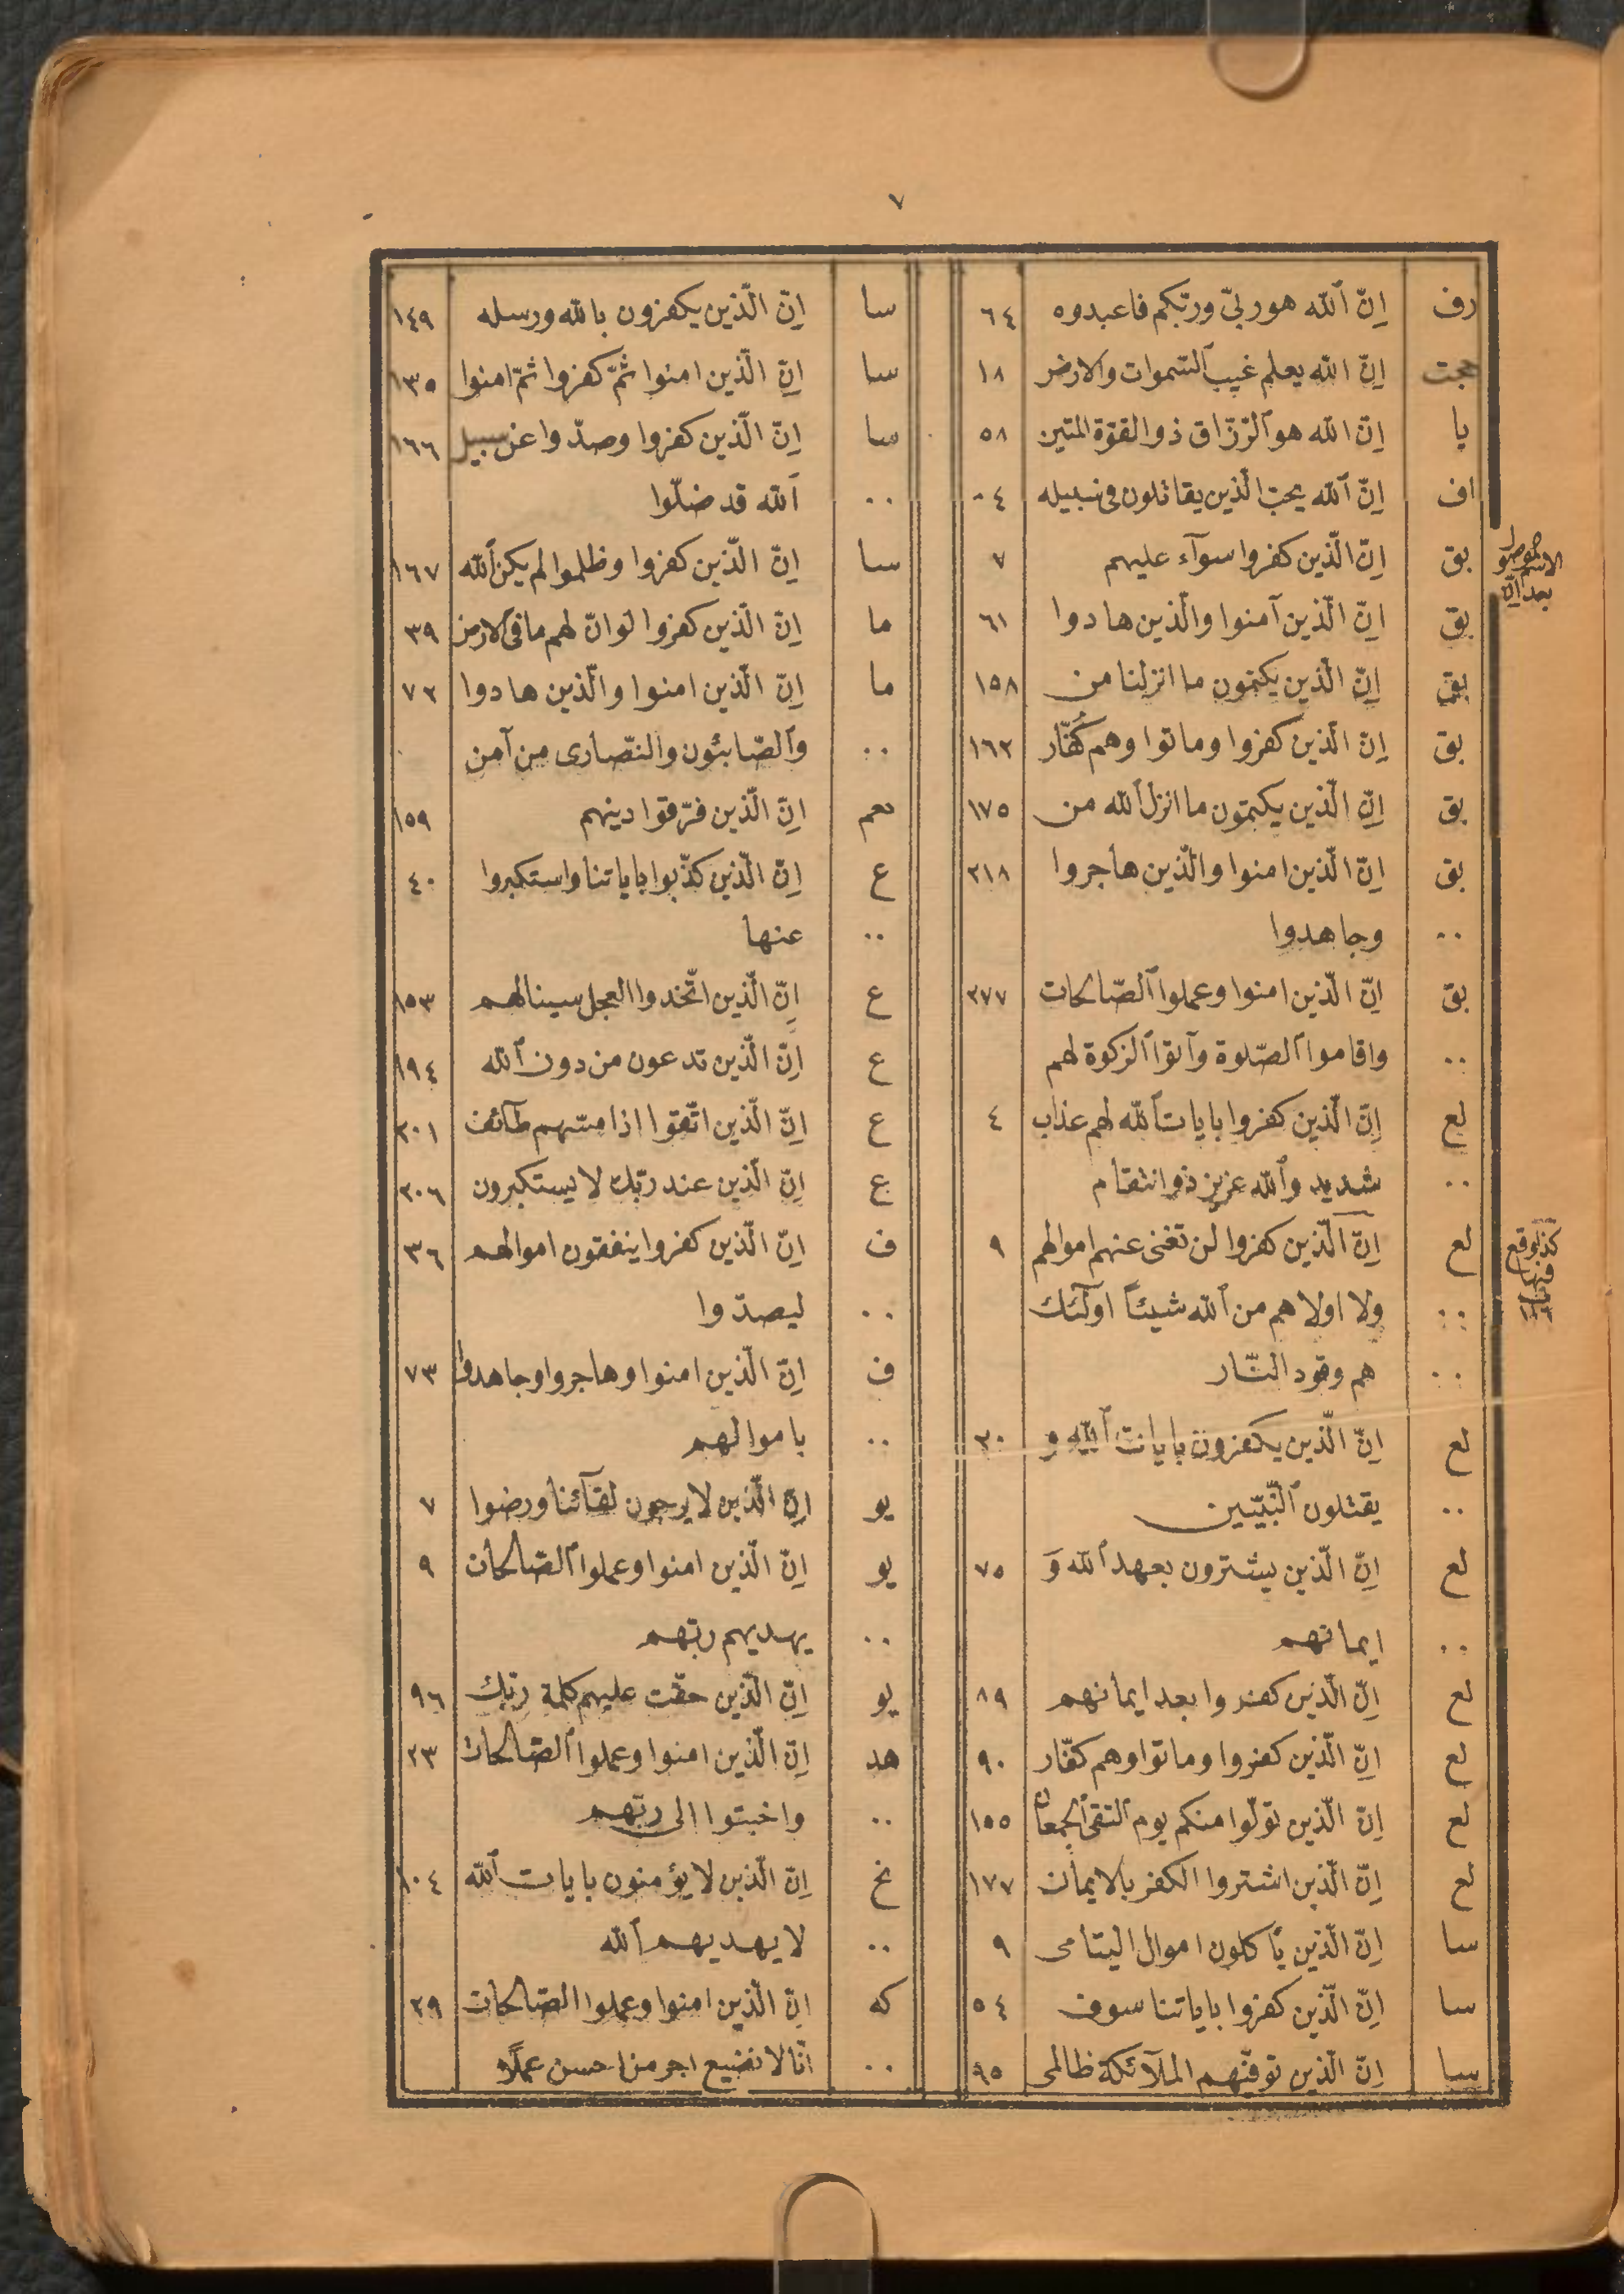 ٧
رف انّ الله هو ربّي وربّكم فاعبدوه ٦٤
حجت انّ الله يعلم غيب السّموات والارض ١٨
يا انّ الله هو الرّزّاق ذو القوّة المتين ٥٨
اف انّ الله يحبّ الّذين يقاتلون في سبيله ٠٤
بق انّ الّذين كفروا سوآء عليهم ٧
بق انّ الّذين آمنوا والّذين هادوا ٦١
بق انّ الّذين يكتمون ما انزلنا من ١٥٨
بق انّ الّذين كفروا وماتوا وهم كُفّار ١٦٢
بق انّ الّذين يكتمون ما انزل الله من ١٧٥
بق انّ الّذين امنوا والّذين هاجروا ٢١٨
٠٠ وجاهدوا
بق انّ الّذين امنوا وعملوا الصّالحات ٢٧٧
٠٠ واقاموا الصّلوة وآتوا الزكوة لهم
لع انّ الّذين كفروا بايات الله لهم عذاب ٤
٠٠ شديد والله عزيز ذو انتقام
لع انّ الّذين كفروا لن تغنى عنهم اموالهم ٩
٠٠ ولا اولاهم من الله شيئاً اولئك
٠٠ هم وقود النّار
لع انّ الّذين يكفرون بايات الله و ٢٠
٠٠ يقتلون النّبيّين
لع انّ الّذين يشترون بعهد الله وَ ٧٥
٠٠ ايمانهم
لع انّ الّذين كفروا بعد ايمانهم ٨٩
لع انّ الّذين كفروا وماتوا وهم كفّار ٩٠
لع انّ الّذين تولّوا منكم يوم التقى الجمعان ١٥٥
لع انّ الّذين اشتروا الكفر بالايمان ١٧٧
سا انّ الّذين يأكلون اموال اليتامى ٩
سا انّ الّذين كفروا باياتنا سوف ٥٤
سا انّ الّذين توفّيهم الملآئكة ظالمى ٩٥
الاسم الموصول
بعد انّ
كذا وقع
فيها
سا انّ الّذين يكفرون بالله ورسله ١٤٩
سا انّ الّذين امنوا ثمّ كفروا ثمّ امنوا ١٣٥
سا انّ الّذين كفروا وصدّوا عن سبيل ١٦٦
٠٠ الله قد ضلّوا
سا انّ الّذين كفروا وظلموا لم يكن الله ١٦٧
ما انّ الّذين كفروا لو انّ لهم ما في الارض ٣٩
ما انّ الّذين امنوا والّذين هادوا ٧٢
٠٠ والصّابئون والنّصارى من آمن
نعم انّ الّذين فرّقوا دينهم ١٥٩
ع انّ الّذين كذّبوا باياتنا واستكبروا ٤٠
٠٠ عنها
ع انّ الّذين اتّخذوا العجل سينالهم ١٥٣
ع انّ الّذين تدعون من دون الله ١٩٤
ع انّ الّذين اتّقوا اذا مسّهم طآئف ٢٠١
ع انّ الّذين عند ربّك لا يستكبرون ٢٠٦
ف انّ الّذين كفروا ينفقون اموالهم ٣٦
٠٠ ليصدّوا
ف انّ الّذين امنوا وهاجروا وجاهدوا ٧٣
٠٠ باموالهم
يو انّ الّذين لا يرجون لقآئنا ورضوا ٧
يو انّ الّذين امنوا وعملوا الصّالحات ٩
٠٠ يهديهم ربّهم
يو انّ الّذين حقّت عليهم كلمة ربّك ٩٦
هد انّ الّذين امنوا وعملوا الصّالحات ٢٣
٠٠ واخبتوا الى ربّهم
نخ انّ الّذين لا يؤمنون بايات الله ١٠٤
٠٠ لا يهديهم الله
كه انّ الّذين امنوا وعملوا الصّالحات ٢٩
٠٠ انّا لا نضيع اجر من احسن عملًا